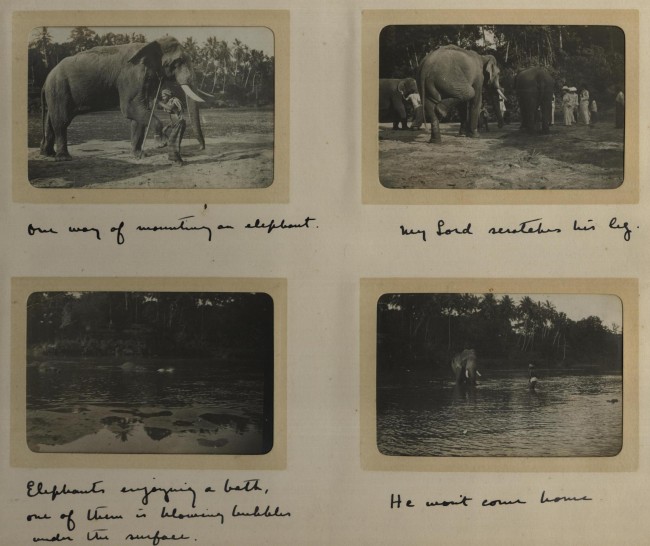 One way of mounting an elephant.
My Lord scratches his leg.
Elephants enjoying a bath,
one of them is blowing bubbles
under the surface.
He won't come home